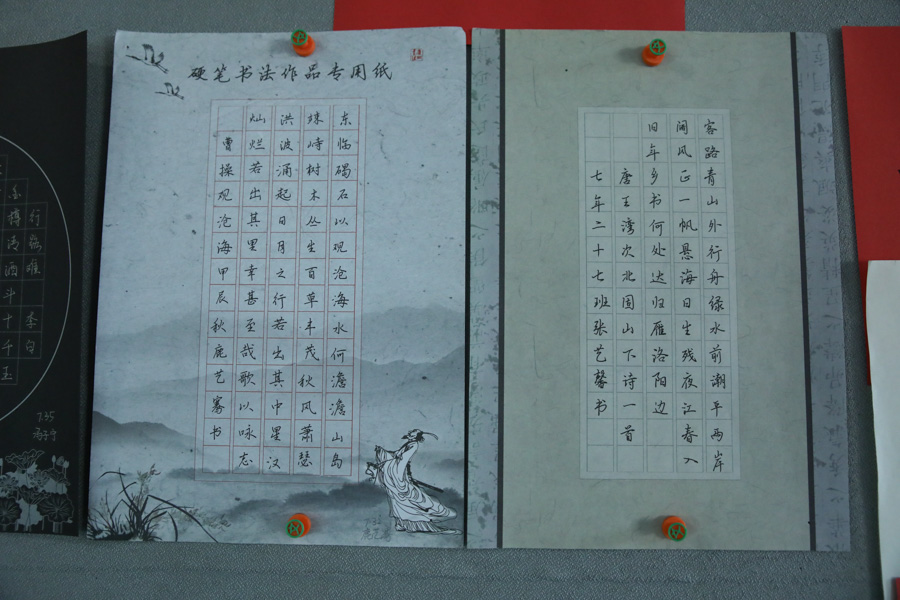 硬笔书法作品专用纸
东临碣石以观沧海水何澹澹山岛
竦峙树木丛生百草丰茂秋风萧瑟
洪波涌起日月之行若出其中星汉
灿烂若出其里幸甚至哉歌以咏志
曹操观沧海甲辰秋鹿艺书
客路青山外行舟绿水前潮平两岸
阔风正一帆悬海日生残夜江春入
旧年乡书何处达归雁洛阳边
唐王湾次北固山下诗一首
七年二十七班张艺馨书
行路难李白
金樽清酒斗十千玉
7.35